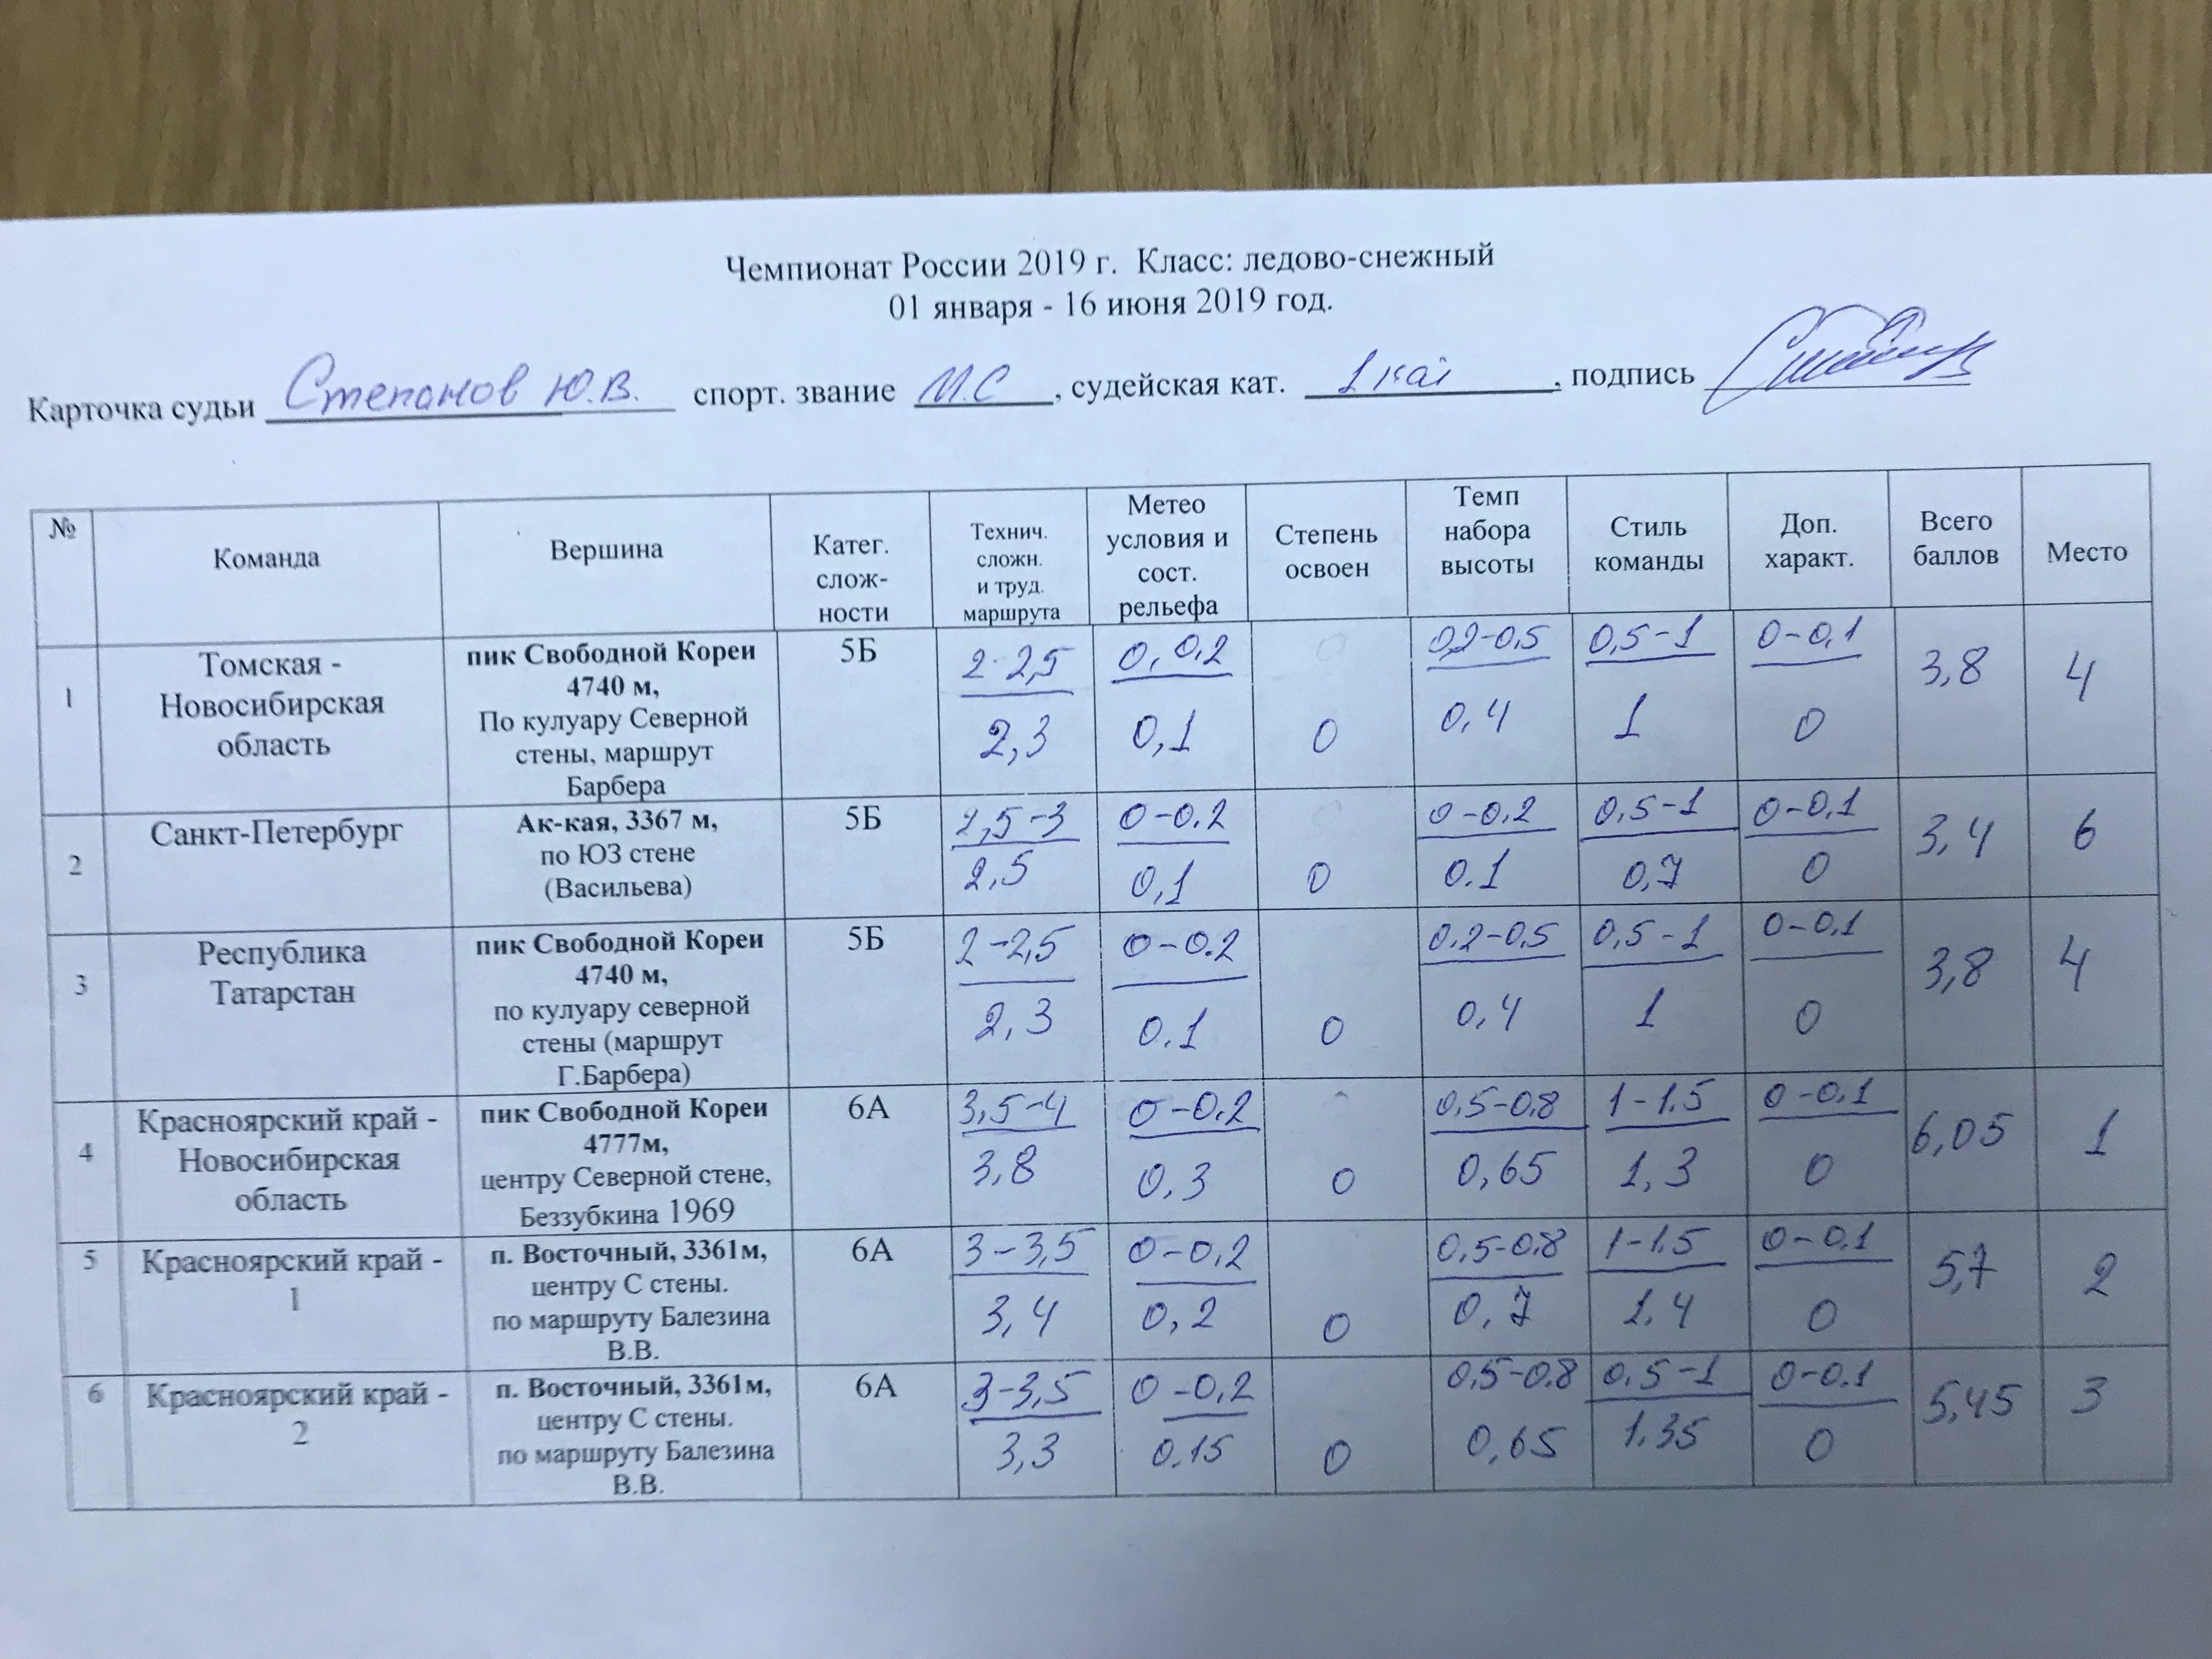 Чемпионат России 2019 г. Класс: ледово-снежный
01 января - 16 июня 2019 год.
Карточка судьи Степанов Ю.В. спорт. звание М.С , судейская кат. 1 кат , подпись
№
Команда
Вершина
Катег.
слож-
ности
Технич.
сложн.
и труд.
маршрута
Метео
условия и
сост.
рельефа
Степень
освоен
Темп
набора
высоты
Стиль
команды
Доп.
характ.
Всего
баллов
Место
1
Томская -
Новосибирская
область
пик Свободной Кореи
4740 м,
По кулуару Северной
стены, маршрут
Барбера
5Б
2-2,5
2,3
0, 0,2
0,1
0
0,2-0,5
0,4
0,5-1
1
0-0,1
0
3,8
4
2
Санкт-Петербург
Ак-кая, 3367 м,
по ЮЗ стене
(Васильева)
5Б
2,5-3
2,5
0-0.2
0,1
0
0-0,2
0.1
0,5-1
0,7
0-0,1
0
3,4
6
3
Республика
Татарстан
пик Свободной Кореи
4740 м,
по кулуару северной
стены (маршрут
Г.Барбера)
5Б
2-2,5
2,3
0-0.2
0.1
0
0,2-0,5
0,4
0,5-1
1
0-0,1
0
3,8
4
4
Красноярский край -
Новосибирская
область
пик Свободной Кореи
4777м,
центру Северной стене,
Беззубкина 1969
6А
3,5-4
3,8
0-0.2
0,3
0
0,5-0,8
0,65
1-1,5
1,3
0-0,1
0
6,05
1
5
Красноярский край -
1
п. Восточный, 3361м,
центру С стены.
по маршруту Балезина
В.В.
6А
3-3,5
3,4
0-0,2
0,2
0
0,5-0,8
0,7
1-1,5
1,4
0-0,1
0
5,7
2
6
Красноярский край -
2
п. Восточный, 3361м,
центру С стены.
по маршруту Балезина
В.В.
6А
3-3,5
3,3
0-0,2
0.15
0
0,5-0,8
0,65
0,5-1
1.35
0-0.1
0
5,45
3